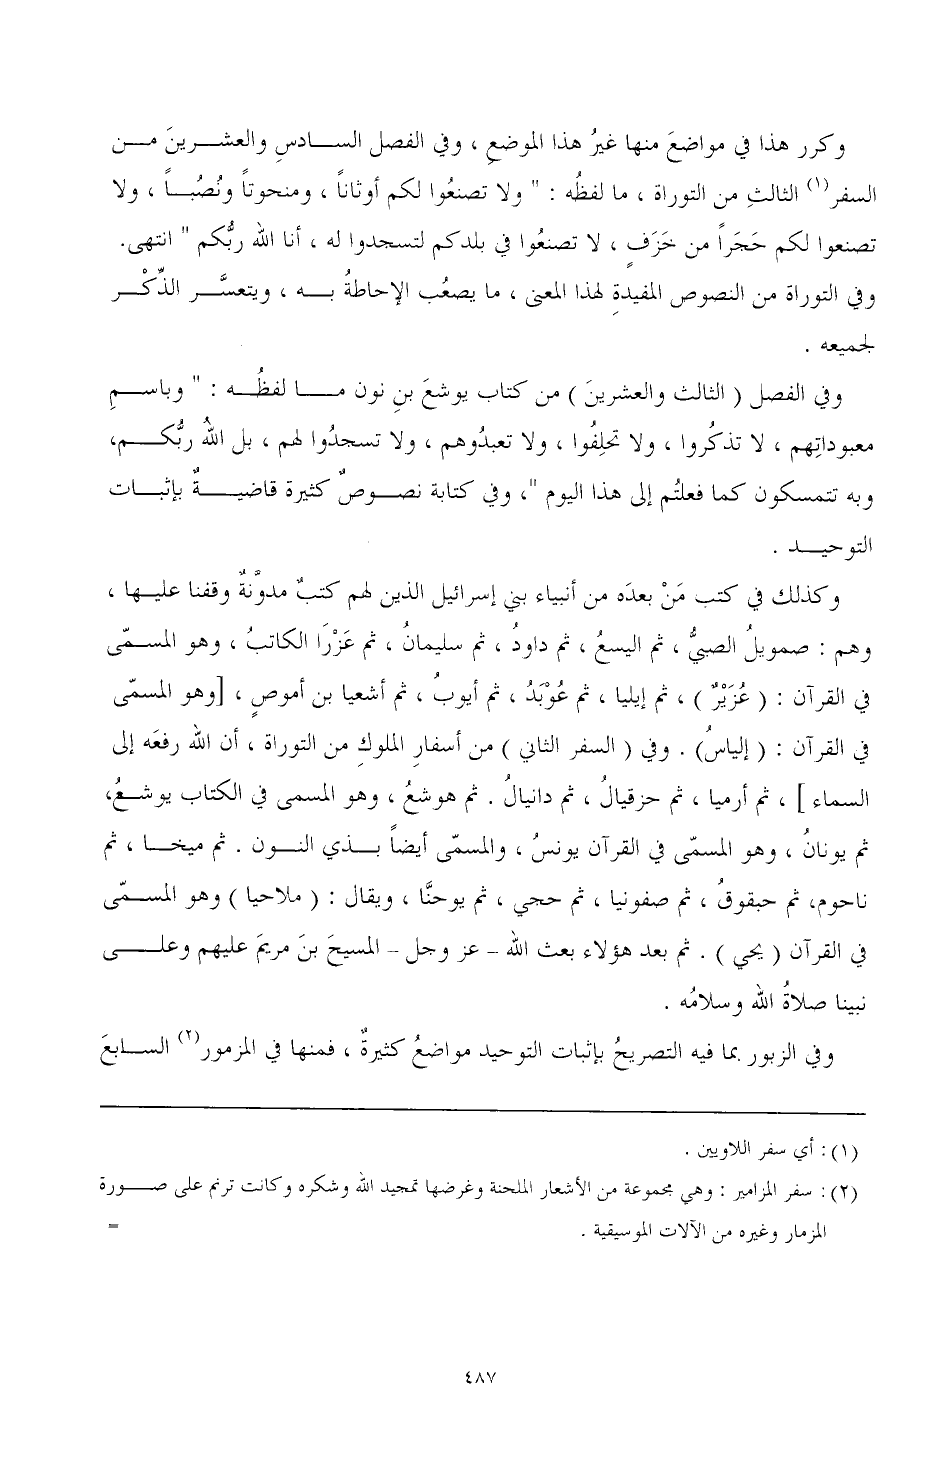 وكرر هذا في مواضعَ منها غيرُ هذا الموضعِ ، وفي الفصل السادسِ والعشرينَ من
السفر(١) الثالثِ من التوراة ، ما لفظُه : " ولا تصنعُوا لكم أوثاناً ، ومنحوتاً ونُصُباً ، ولا
تصنعوا لكم حَجَراً من خَزَفٍ ، لا تصنعُوا في بلدكم لتسجدوا له ، أنا الله ربُّكم " انتهى.
وفي التوراة من النصوصِ المفيدةِ لهذا المعنى ، ما يصعُب الإحاطةُ به ، ويتعسَّر الذِّكْر
لجميعه .
وفي الفصل ( الثالث والعشرينَ ) من كتاب يوشعَ بنِ نون ما لفظُه : " وباسمِ
معبوداتِهم ، لا تذكُروا ، ولا تحلِفُوا ، ولا تعبدُوهم ، ولا تسجدُوا لهم ، بل اللهُ ربُّكم،
وبه تتمسكون كما فعلتُم إلى هذا اليوم "، وفي كتابة نصوصٌ كثيرة قاضيةٌ بإثبات
التوحيد .
وكذلك في كتب مَنْ بعدَه من أنبياء بني إسرائيل الذين لهم كتبٌ مدوَّنةٌ وقفنا عليها ،
وهم : صمويلُ الصبيُّ ، ثم اليسعُ ، ثم داودُ ، ثم سليمانُ ، ثم عَزْرَا الكاتبُ ، وهو المسمّى
في القرآن : ( عُزَيْرٌ ) ، ثم إيليا ، ثم عُوْبَدُ ، ثم أيوبُ ، ثم أشعيا بن أموصٍ ، [وهو المسمّى
في القرآن : ( إلياسُ) . وفي ( السفر الثاني ) من أسفارِ الملوكِ من التوراة ، أن الله رفعَه إلى
السماء ] ، ثم أرميا ، ثم حزقيالُ ، ثم دانيالُ . ثم هوشعُ ، وهو المسمى في الكتاب يوشعُ،
ثم يونانُ ، وهو المسمّى في القرآن يونسُ ، والمسمّى أيضاً بذي النون . ثم ميخا ، ثم
ناحوم، ثم حبقوقُ ، ثم صفونيا ، ثم حجي ، ثم يوحنَّا ، ويقال : ( ملاحيا ) وهو المسمّى
في القرآن ( يحي ) . ثم بعد هؤلاء بعث الله – عز وجل – المسيحَ بنَ مريمَ عليهم وعلى
نبينا صلاةُ الله وسلامُه .
وفي الزبور بما فيه التصريحُ بإثبات التوحيد مواضعُ كثيرةٌ ، فمنها في المزمور(٢) السابعَ
(١) : أي سفر اللاويين .
(٢) : سفر المزامير : وهي مجموعة من الأشعار الملحنة وغرضها تمجيد الله وشكره وكانت ترنم على صورة
المزمار وغيره من الآلات الموسيقية . =
٤٨٧